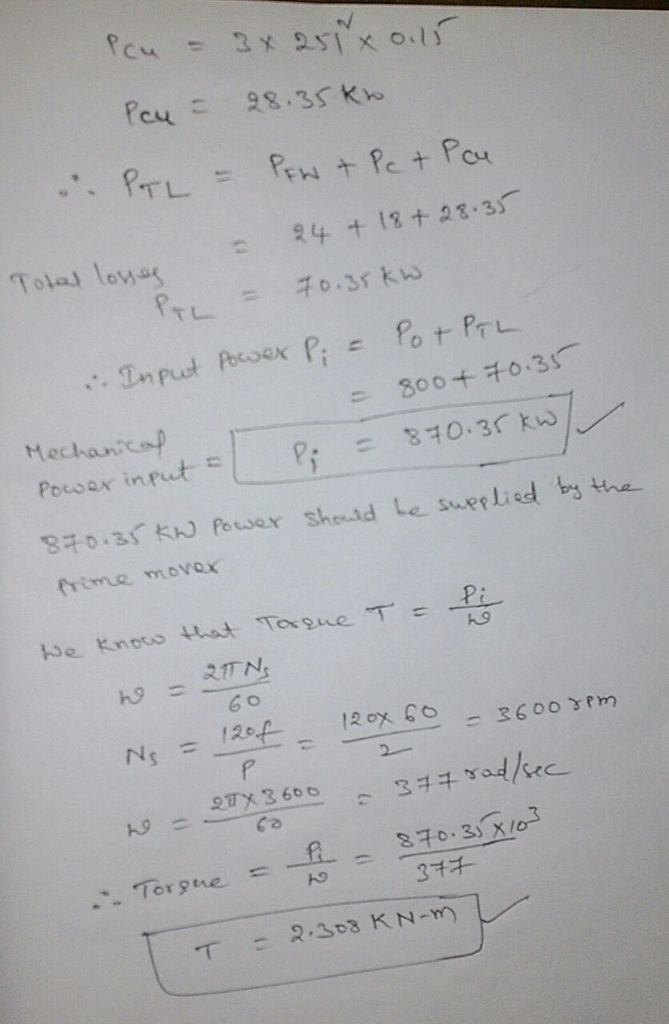 Pcu = 3 x 251² x 0.15
Pcu = 28.35 Kw
∴ PTL = PFW + Pc + Pcu
= 24 + 18 + 28.35
Total losses PTL = 70.35 KW
∴ Input Power Pi = Po + PTL
= 800 + 70.35
Mechanical Power input = Pi = 870.35 KW ✓
870.35 KW Power should be supplied by the
Prime mover
We know that Torque T = Pi/ω
ω = 2πNs/60
Ns = 120f/P = 120x60/2 = 3600 rpm
ω = 2πx3600/60 = 377 rad/sec
∴ Torque = Pi/ω = 870.35x10³/377
T = 2.308 KN-m ✓